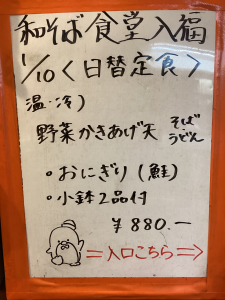 和そば食堂入福
1/10〈日替定食〉
温・冷)
野菜かきあげ天 そば
うどん
・おにぎり(鮭)
・小鉢2品付
¥880.ー
＝入口こちら⇒